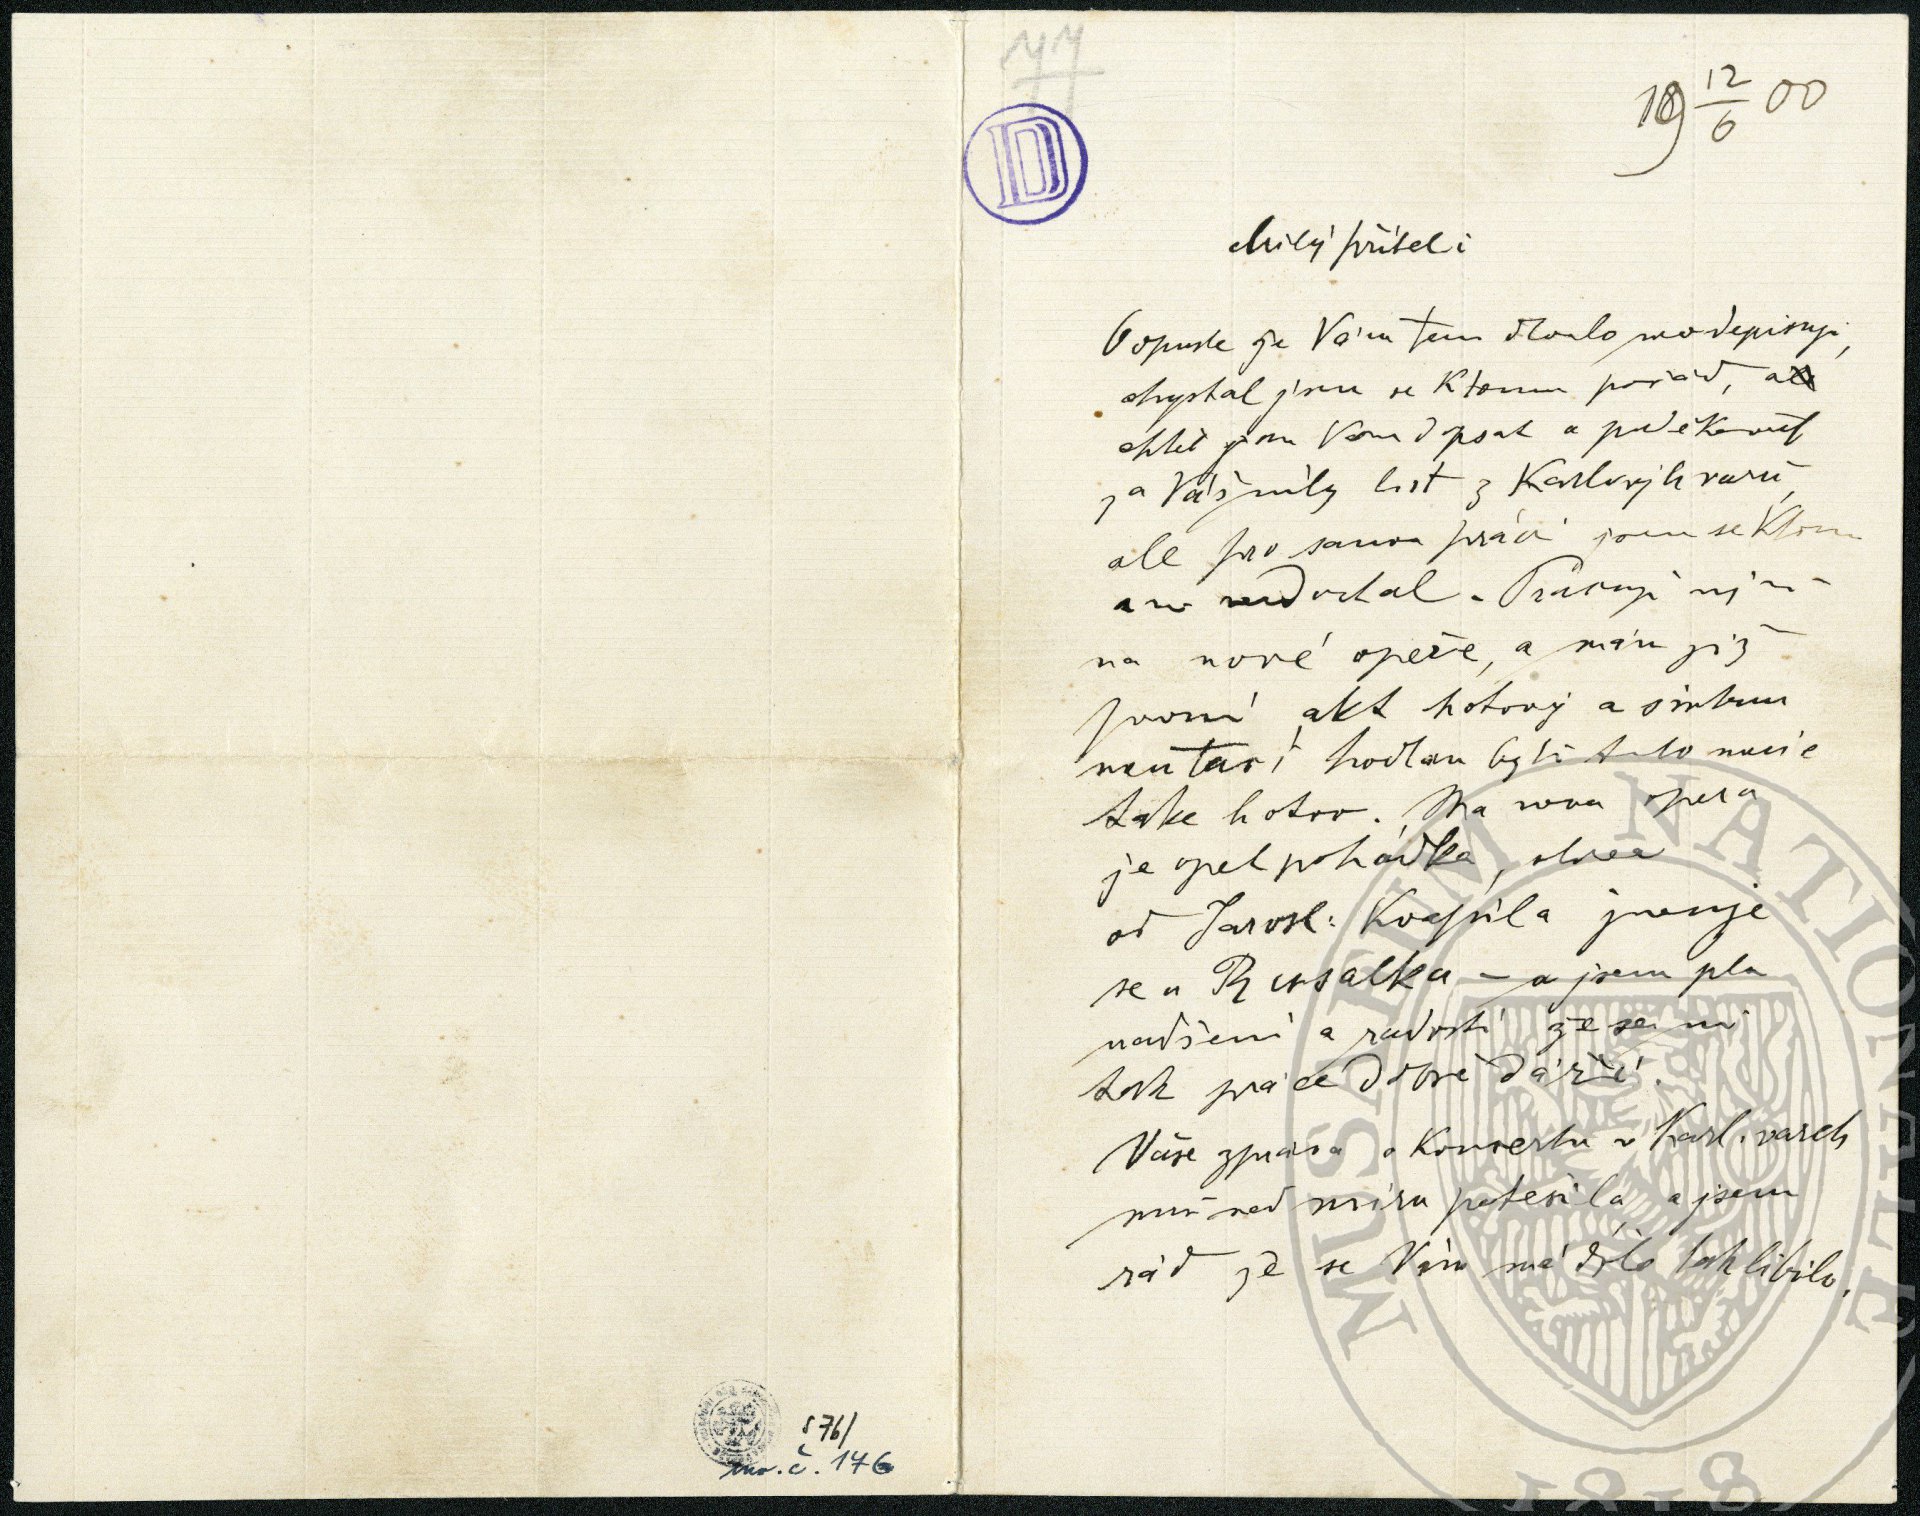 D
19 12/6 00
Milý příteli
Odpusťte že Vám tem dlouho neodepisuji,
chystal jsem se k tomu pořád, ale
chtěl jsem Vám dopsat a poděkovat
za Váš milý list z Karlových varů,
ale pro samou práci jsem se k tomu
ani nedostal. Pracuji nyní
na nové opeře, a mám již
první akt hotový a s
hodlám býti
take hotov. Má nova opera
je opet pohádka,
od Jarosl: Kvapila jmenuje
se „Rusalka — a jsem pln
nadšení a radosti že se mi
tak práce dobře dáří.
Váše zpráva o koncertu v Karl. varech
mně nad míru potešila, a jsem
rád že se Vám mé dílo tak líbilo.
S 76/
inv. č. 176
MUSEUM NATIONALE
1818